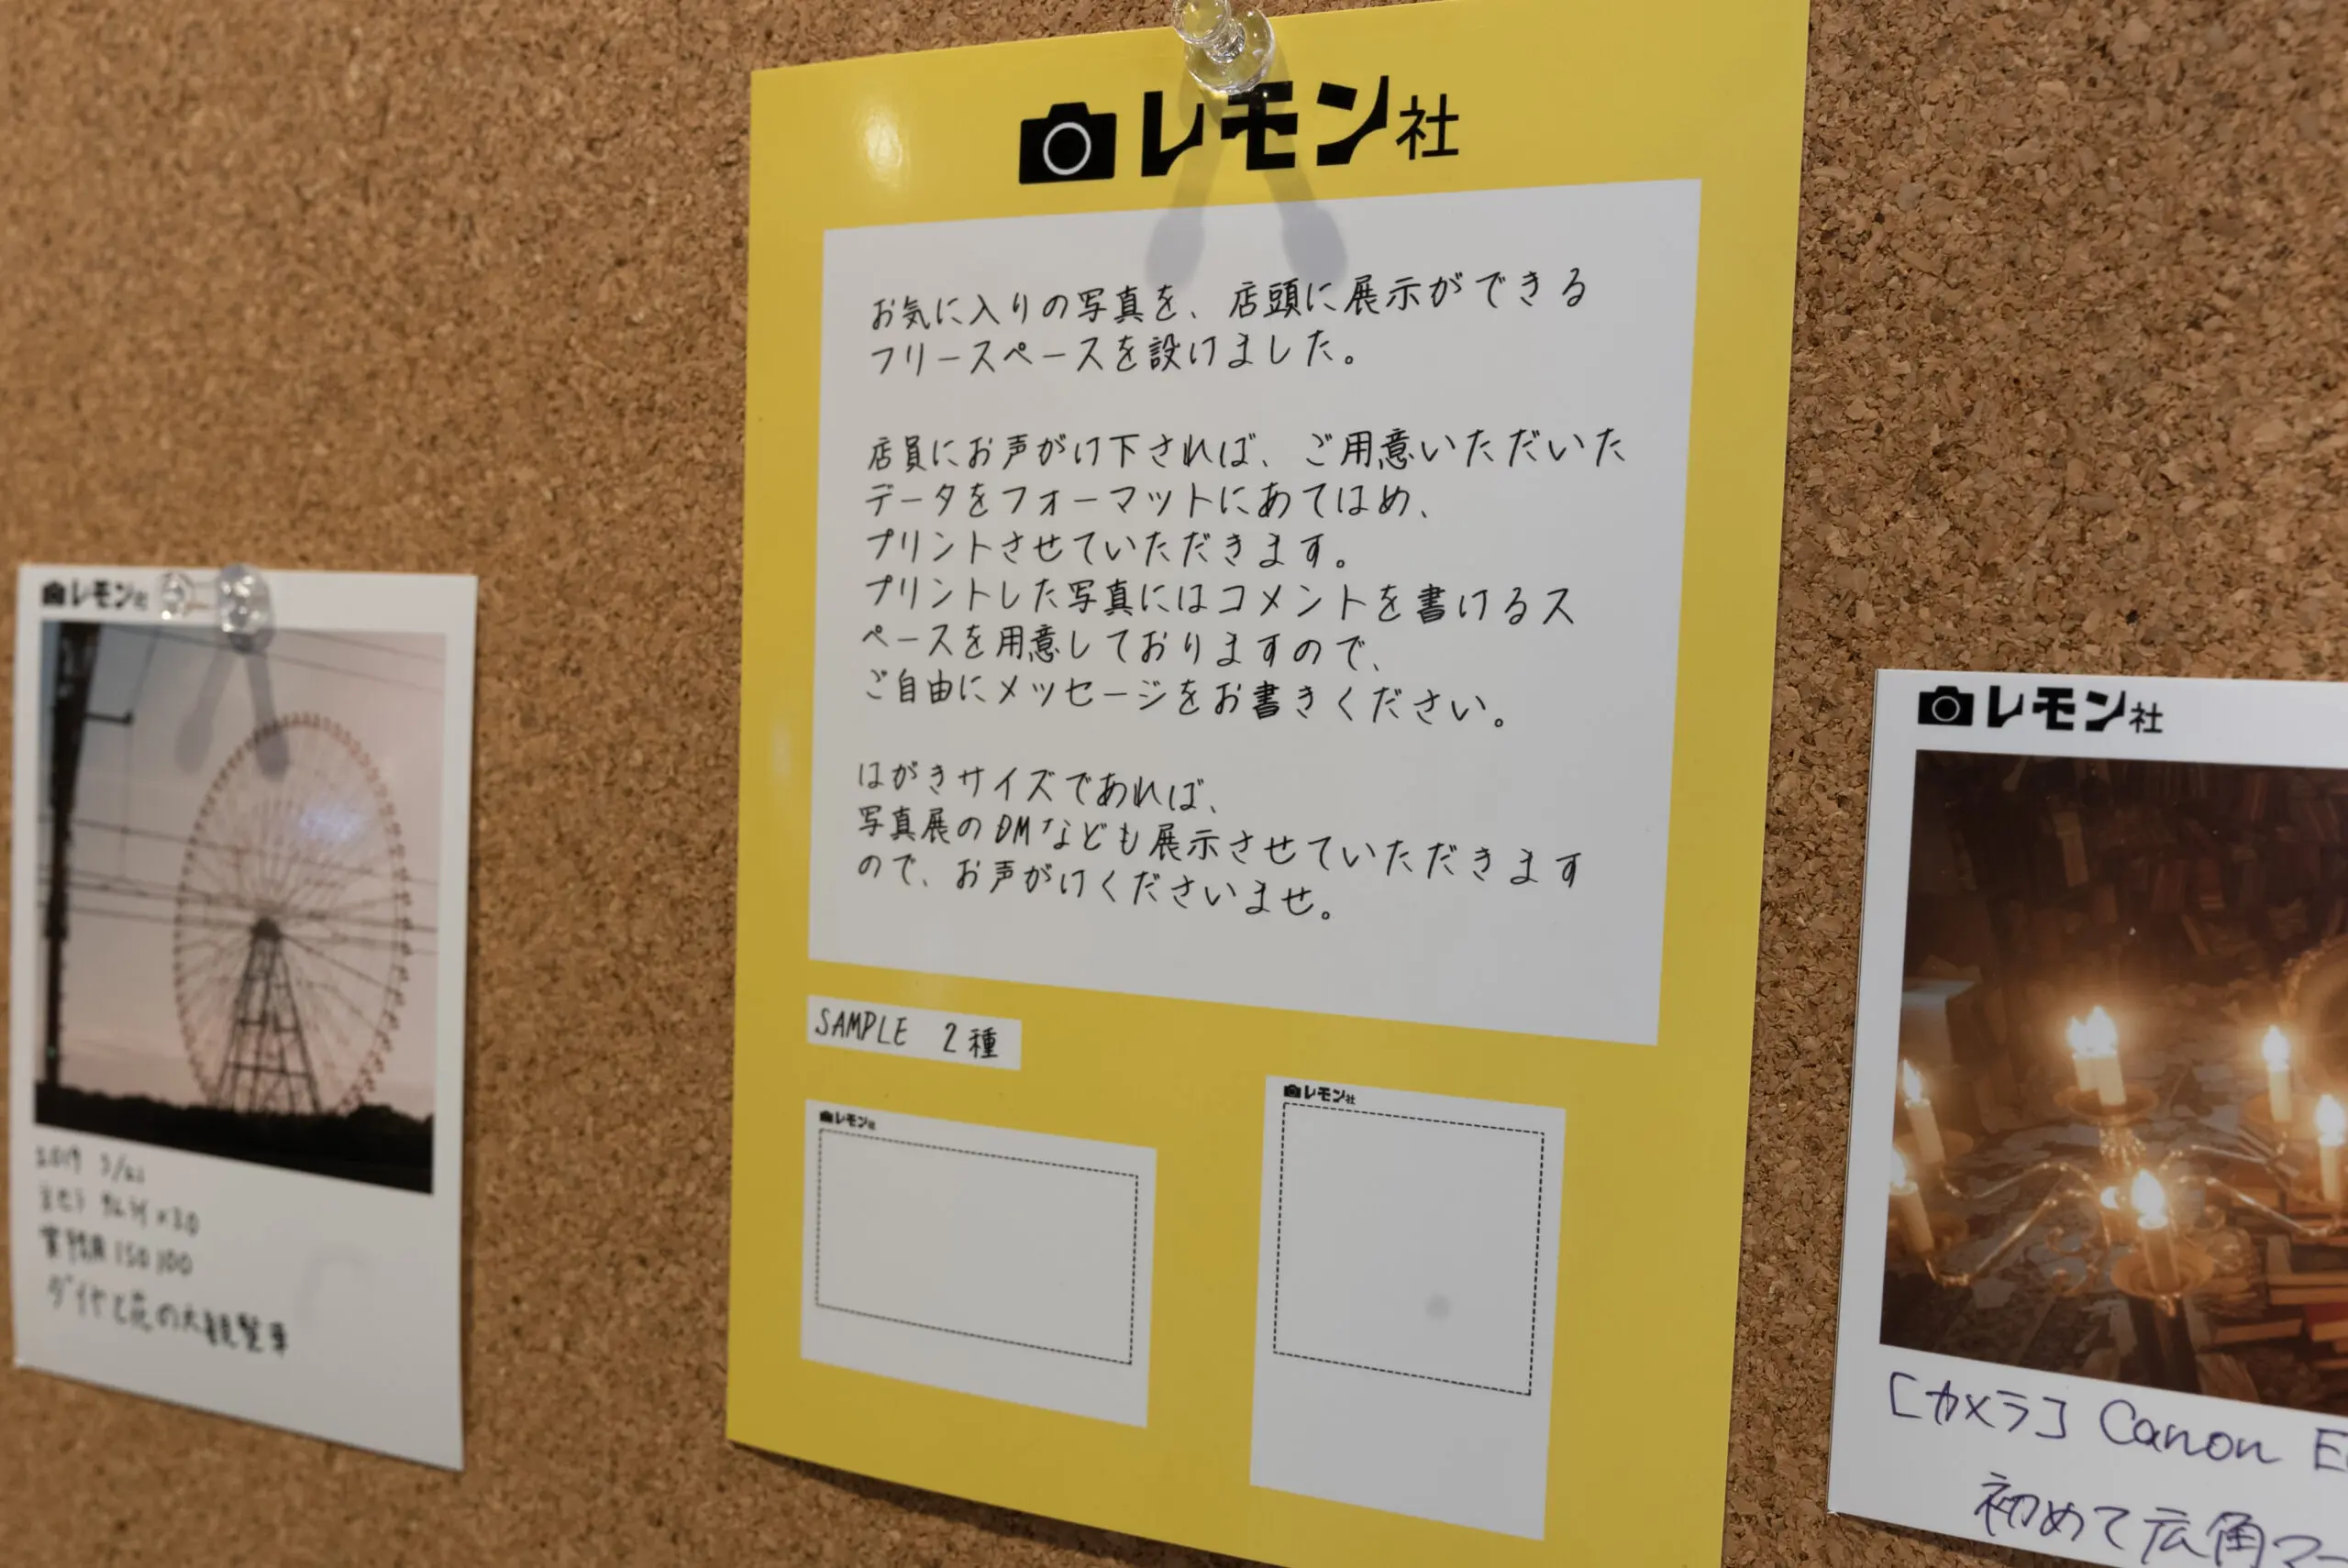 レモン社
お気に入りの写真を、店頭に展示ができる
フリースペースを設けました。
店員にお声がけ下されば、ご用意いただいた
データをフォーマットにあてはめ、
プリントさせていただきます。
プリントした写真にはコメントを書けるス
ペースを用意しておりますので、
ご自由にメッセージをお書きください。
はがきサイズであれば、
写真展のDMなども展示させていただきます
ので、お声がけくださいませ。
SAMPLE 2種
レモン社
レモン社
レモン社
2019
業務用 ISO100
ダイヤと花の大観覧車
レモン社
[カメラ] Canon
初めて広角